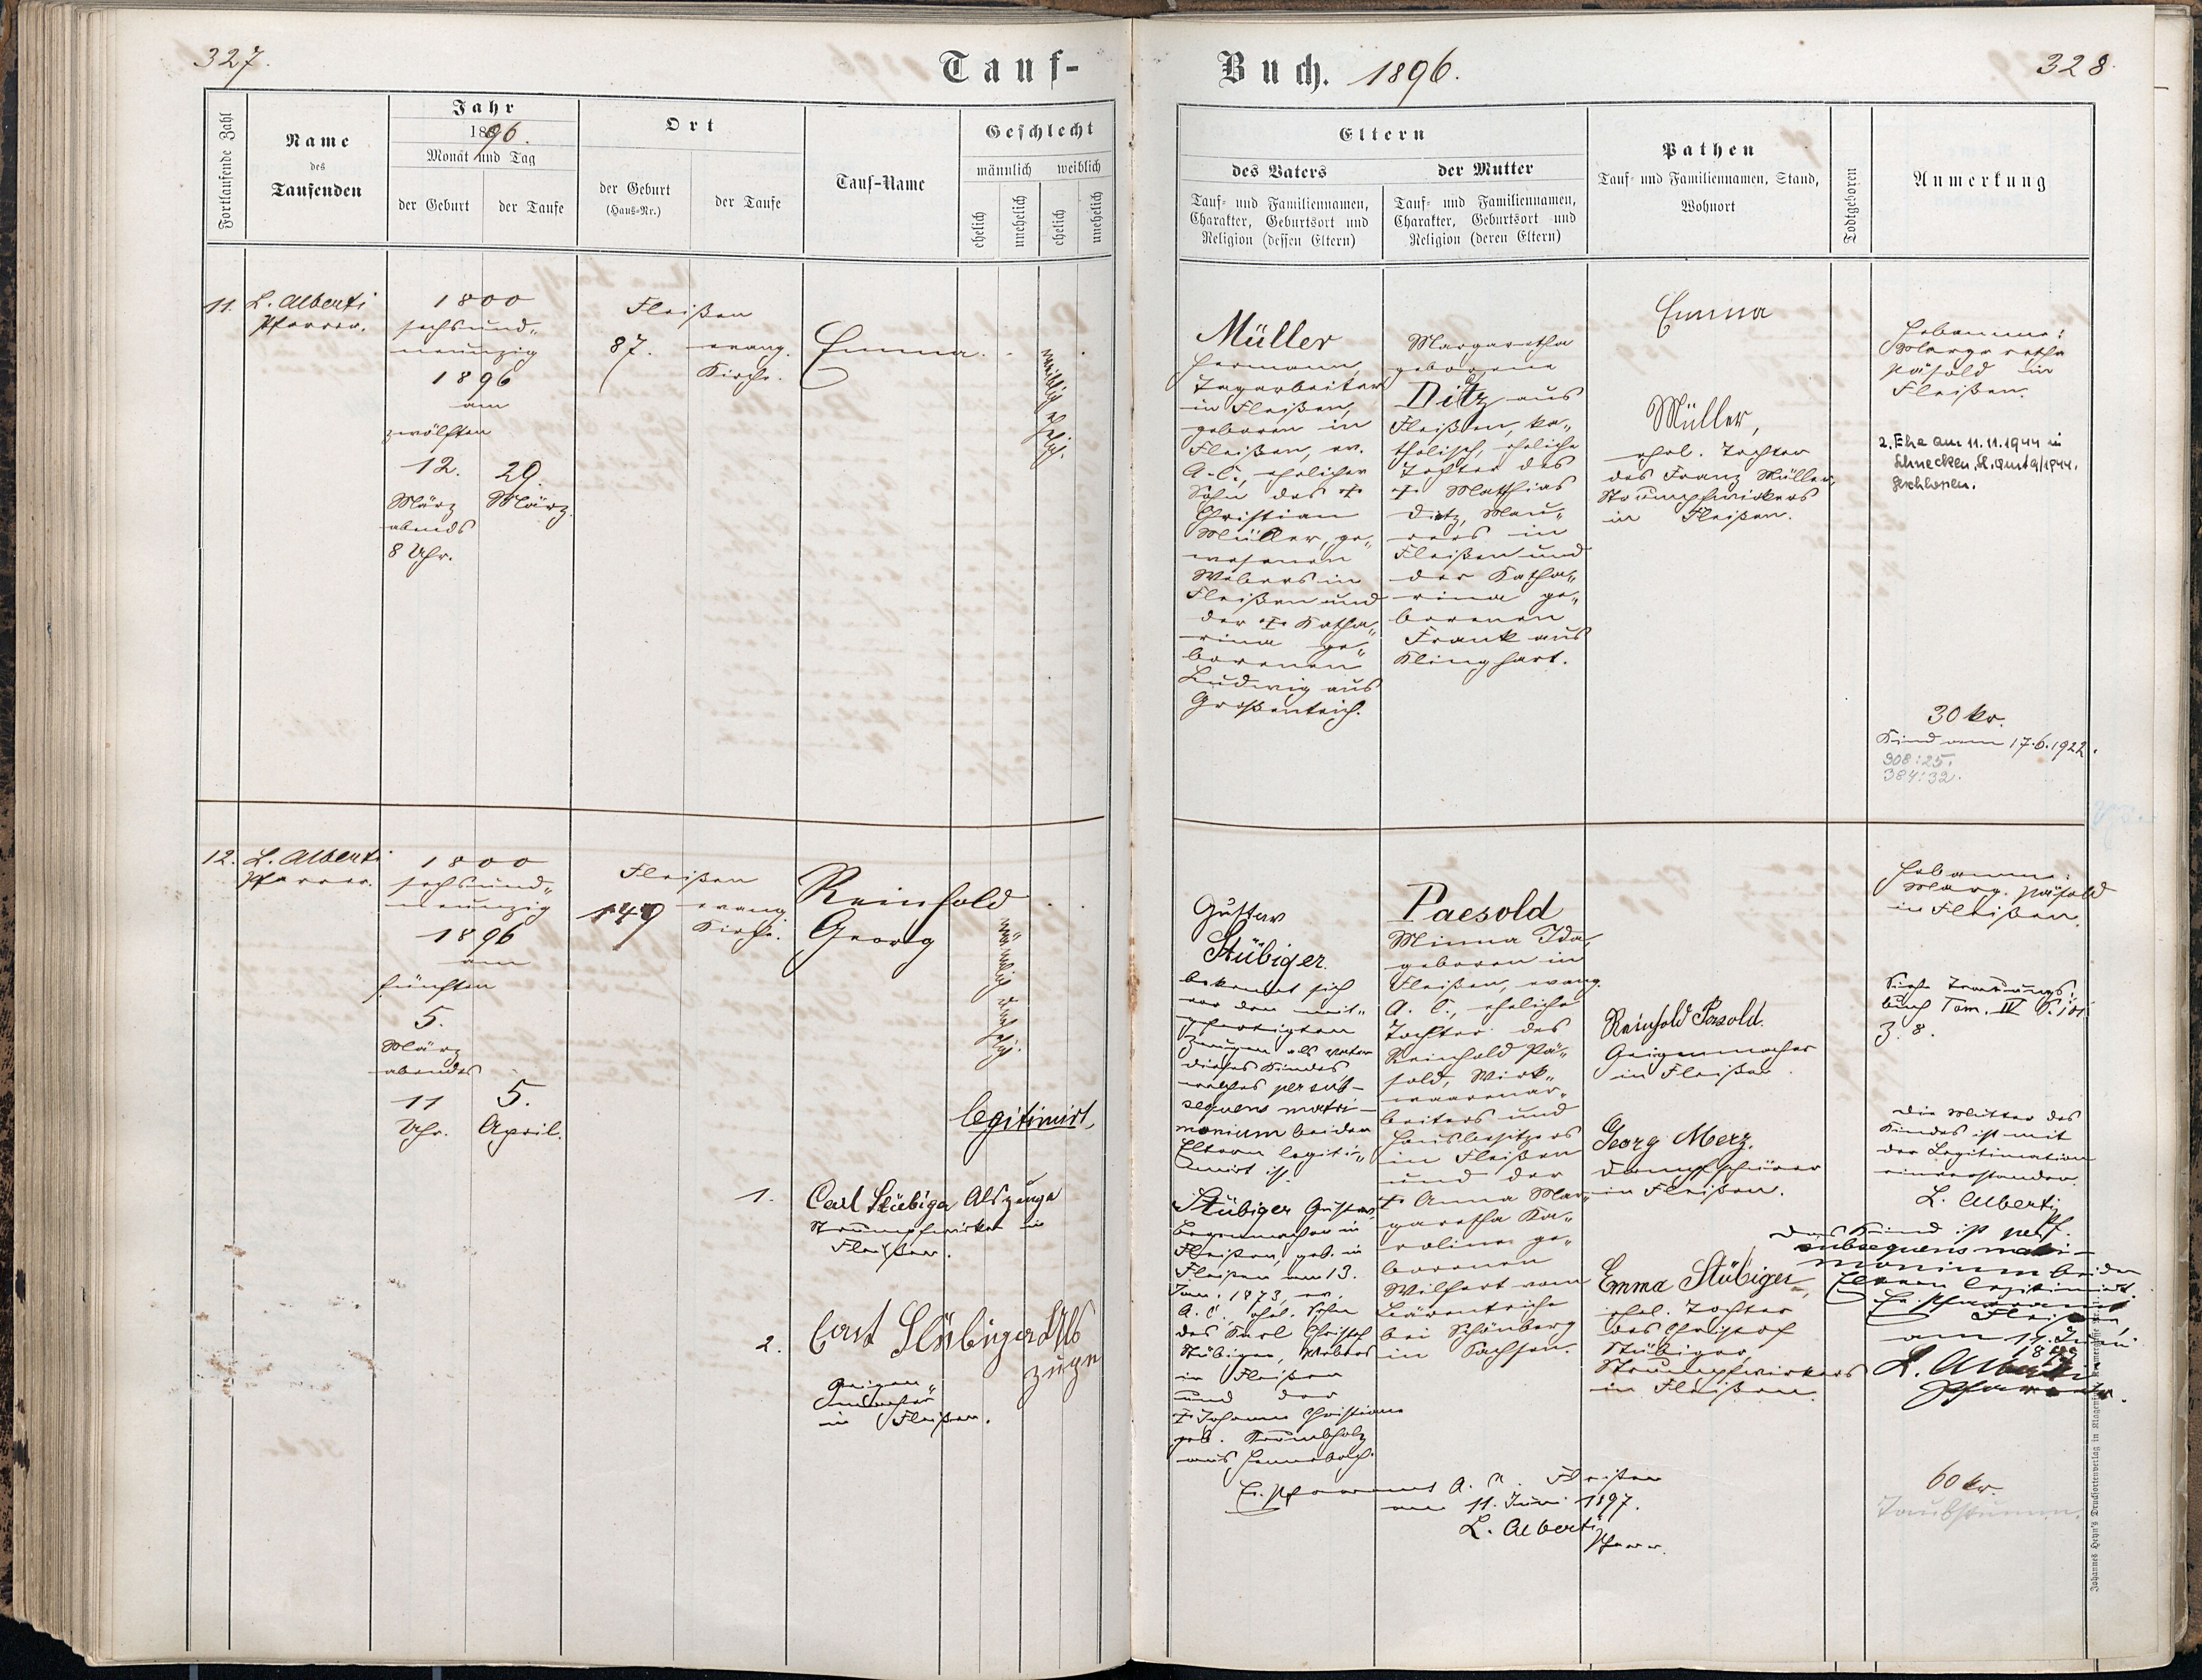 327.
Tauf-
Buch. 1896.
328.
Fortlaufende Zahl
Name
des
Taufenden
Jahr
1896.
Monat und Tag
der Geburt
der Taufe
Ort
der Geburt
(Haus-Nr.)
der Taufe
Tauf-Name
Geschlecht
männlich
weiblich
ehelich
unehelich
ehelich
unehelich
Eltern
des Vaters
Tauf- und Familiennamen,
Charakter, Geburtsort und
Religion (dessen Eltern)
der Mutter
Tauf- und Familiennamen,
Charakter, Geburtsort und
Religion (deren Eltern)
Pathen
Tauf- und Familiennamen, Stand,
Wohnort
Todtgeboren
Anmerkung
11.
L. Alberti
Pfarrer.
1800
sechsund-
neunzig
1896
am
zwölften
12.
März
abends
8 Uhr.
29.
März.
Fleißen
87.
evang.
Kirche.
Emma.
weiblich
ehelich.
Müller
Hermann,
Tagarbeiter
in Fleißen,
geboren in
Fleißen, ev.
A. C., ehelicher
Sohn des †
Christian
Müller, ge-
wesenen
Webers in
Fleißen und
der † Katha-
rina ge-
borenen
Ludwig aus
Großenteich.
Margaretha
geborene
Ditz aus
Fleißen, ka-
tholisch, eheliche
Tochter des
† Matthias
Ditz, Mau-
rers in
Fleißen und
der Katha-
rina ge-
borenen
Frank aus
Klinghart.
Emma
Müller,
ehel. Tochter
des Franz Müller,
Strumpfwirkers
in Fleißen.
Hebamme:
Margaretha
Päsold in
Fleißen.
2. Ehe am 11.11.1944 in
Schnecken, St. Amt 9/1944.
geschlossen.
30 kr.
Kind vom 17.6.1922.
908:25.
384:32.
12.
L. Alberti
Pfarrer.
1800
sechsund-
neunzig
1896
am
fünften
5.
März
abends
11
Uhr.
5.
April.
Fleißen
149
evang.
Kirche.
Reinhold
Georg
männlich
unehelich.
legitimirt
1. Carl Stübiger Als zeuge
Strumpfwirker in
Fleißen.
2. Carl Stübiger Als
zeuge
Geigen-
macher
in Fleißen.
Gustav
Stübiger.
bekennt sich
vor den mit-
gefertigten
Zeugen als Vater
dieses Kindes
welches per sub-
sequens matri-
monium beider
Eltern legiti-
mirt ist.
Stübiger Gustav,
Bogenmacher in
Fleißen, geb. in
Fleißen am 13.
Jan. 1873, ev.
A. C. ehel. Sohn
des Karl Christof
Stübiger, Webers
in Fleißen
und der
† Johanne Christiane
geb. Krumbholz
aus
Ev. Pfarramt A. C. Fleißen
am 11. Juni 1897.
L. Alberti
Pfarrer.
Paesold
Minna Ida,
geboren in
Fleißen, evang.
A. C., eheliche
Tochter des
Reinhold Pä-
sold, Wirk-
waarenar-
beiters und
Hausbesitzers
in Fleißen
und der
† Anna Mar-
garetha Ka-
roline ge-
borenen
Wilfert vom
Bärenteiche
bei Schönberg
in Sachsen.
Reinhold Päsold.
Geigenmacher
in Fleißen.
Georg Merz.
in Fleißen.
Emma Stübiger,
ehel. Tochter
des Christof
Stübiger,
Strumpfwirkers
in Fleißen.
Hebamme:
Marg. Päsold
in Fleißen.
Siehe Trauungs-
buch Tom. IV S. 101
Z. 8.
Die Mutter des
Kindes ist mit
der Legitimation
einverstanden.
L. Alberti
Pf.
Das Kind ist per
subsequens matri-
monium beider
Eltern legitimirt.
Ev. Pfarramt
Fleißen,
am 11. Juni
1897
L. Alberti
Pfarrer.
60 kr.
Taubstumm.